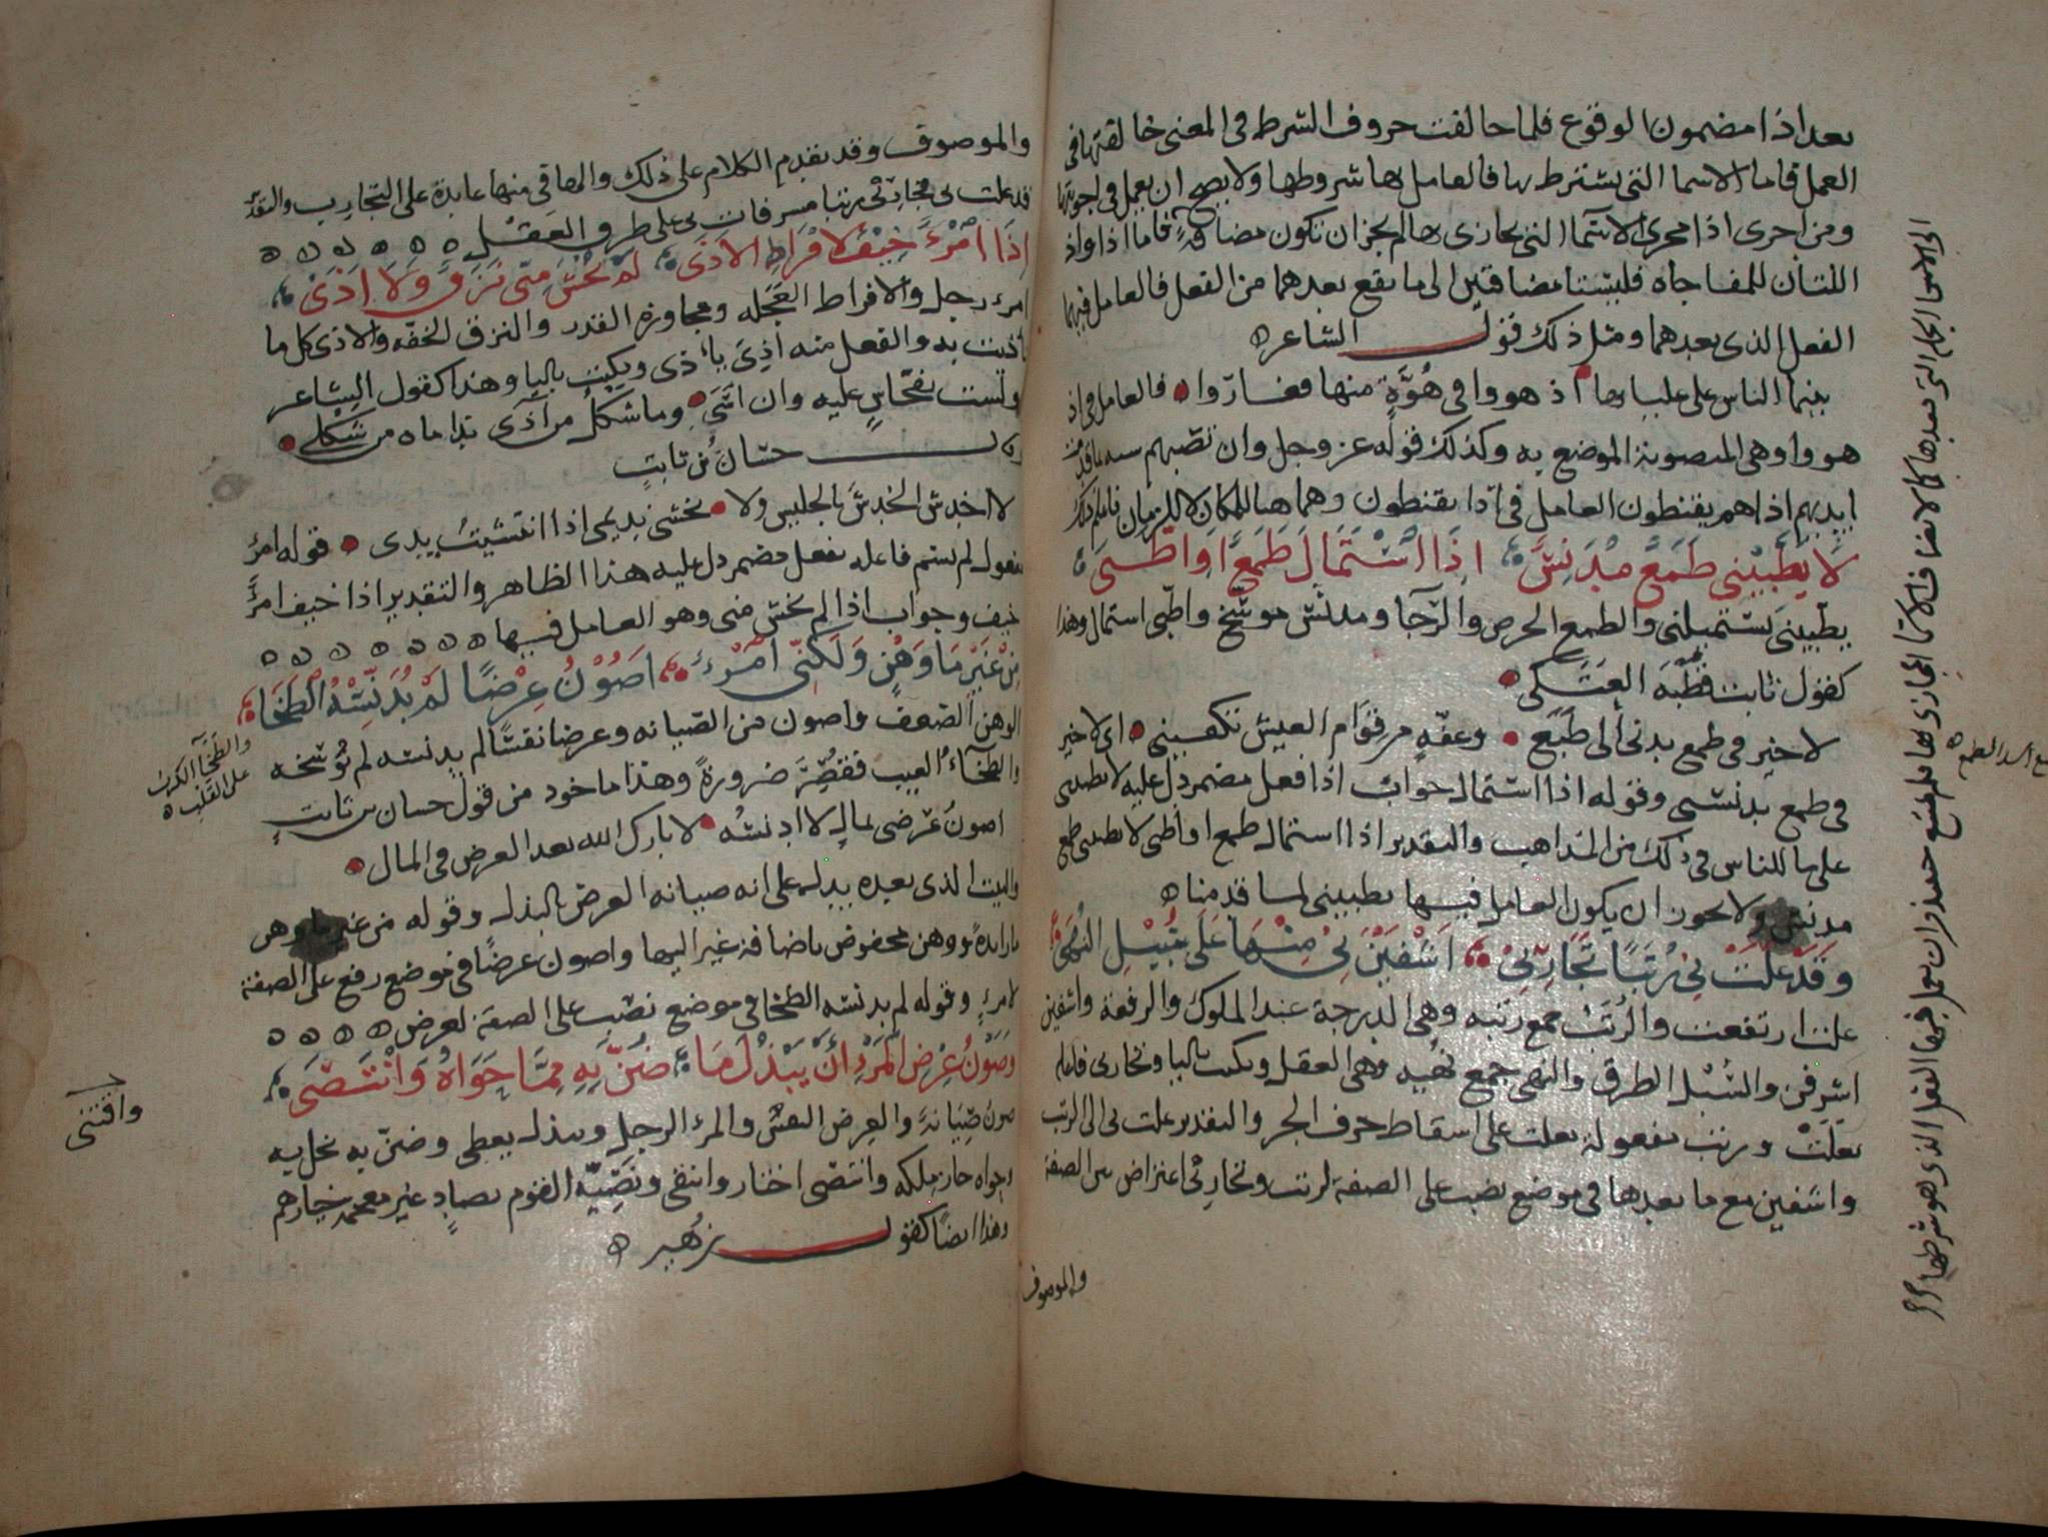 بعد اذا مضمون الوقوع فلما خالفت حروف الشرط فى المعنى خالفتها فى
العمل فاما الاسما التى يشترط بها فالعامل بها شروطها ولا يصح ان يعمل فى اجوبتها
ومن اجرى اذا مجرى الاسما التى يجازى بها لم يجز ان تكون مضافة فاما اذا واذ
اللتان للمفاجاه فليستا مضافتين الى ما يقع بعدهما من الفعل فالعامل فيهما
الفعل الذى بعدهما ومثل ذلك قول الشاعر ه
بينما الناس على عليائها اذ هووا فى هُوَّةٍ منها فغاروا فالعامل فى اذ
هووا وهى المنصوبة الموضع به وكذلك قوله عز وجل وان تصبهم سيه بما قدمت
ايديهم اذا هم يقنطون العامل فى اذا يقنطون وهما هنا للمكان لا للزمان فاعلم ذلك
لَا يَطَّبِيْنِى طَمَعٌ مُدَنِسٌ اِذَا اسْتَمَالَ طَمَعٌ اَوِ اطَّبَى
يطّبينى يستميلنى والطمع الحرص والرّجا ومدنس موسّخ واطّبى استمال وهذا
كقول ثابت قطْبَه العَتَكى
لا خير فى طمع يدنى الى طَبَع وعفّه من قوام العيش تكفينى اى لا خير
فى طمع يدنسى وقوله اذا استمال جواب اذا فعل مضمر دل عليه لا يطبينى
على ما للناس فى ذلك من المذاهب والتقدير اذا استمال طمع او اطبى لا يطبينى طمع
مدنس ولا يجوز ان يكون العامل فيها يطبينى لما قدمنا ه
وَقَدْ عَلَتْ بِىْ رُتَبًا تَجَارِبِىْ اَشْفَيْنَ بِىْ مِنْهَا عَلَى سُبُيْلِ النُهَى
علت ارتفعت والرُتَب جمع رتبه وهى الدرجة عند الملوك والرفعة واشفين
اشرفن والسُبْل الطرق والنهى جمع نُهْيه وهى العقل ويكتب باليا وتجاربى فاعله
بعَلَتْ ورتب مفعولة بعلت على اسقاط حرف الجر والتقدير علت بى الى الرتب
واشفين مع ما بعدها فى موضع نصب على الصفة لرتب وتجاربى اعتراض بين الصفة
والموصوف
والموصوف وقد تقدم الكلام على ذلك والها فى منها عايدة على التجارب والتقدير
قد علت بى تجاربى رتبا مسرفات بى على طرق العَقْل ه ه ه ه ه ه
اِذَا امْرُءٌ خِيْفَ لاِفْرَاطِ الاَذَى لَمْ يُخْشَ مِنّى نَزَقٌ وَلاَ اَذَىْ
امرء رجل والافراط العَجَله ومجاوزة القدر والنزق الخفّه والاذى كل ما
تاذيت به والفعل منه اَذِىَ ياذى ويكتب باليا وهذا كقول الشاعر
ولست بفحّاسٍ عليه وان اسَى وما شكلُ من اَذَى نداماه من شكلى
وقال حسّان بن ثابتٍ
لا اخدش الخدشَ بالجليس ولا يخشى نديمى اذا انتشيتُ يدى قوله امرُ
مفعول لم يسم فاعله بفعل مضمر دل عليه هذا الظاهر والتقدير اذا خيف امرءٌ
خيف وجواب اذا لم يخش منى وهو العامل فيها ه ه ه ه ه ه ه
مِنْ غَيْرِ مَا وَهْنٍ وَلَكِنِّى اَمْرُءٌ اَصُوْنُ عِرْضًا لَمْ يُدَنِّسْهُ الطَخَا
الوهن الضعف واصون من الصيانه وعرضا نفسًا لم يدنسه لم تُوسّخه
والطخَآءُ العيب فقصَّرَ ضرورةً وهذا ماخوذ من قول حسان بن ثابتٍ
والطخَآ الكرب
على القلب ه
اصون عرضى بمالى لا ادنسُه لا بارك الله بعد العرض فى المال
والبيت الذى بعده يدلـ على انه صيانه العرض بالبذلـ وقوله من غير ما وهن
ما زايدةٌ ووهن مخفوض باضافة غير اليها واصون عرضًا فى موضع رفع على الصفة
لامرءٍ وقوله لم يدنسه الطخا فى موضع نصب على الصفة لعرض ه ه ه ه
وَصَوْنُ عِرْضِ الْمَرْءِ اَنْ يَبْذُلَ مَا ضَنَّ بِهِ مِمَّا حَوَاهُ وَانْتَصَى
صون صِيَانةٌ والعِرض النفسُ والمرء الرجل ويبذلـ يعطى وضنّ به بخل به
وحواه حاز ملكه وانتصى اختار وانتقى ونَصِيّه القوم خيارهم
واقتنى
وهذا ايضًا كقول زهير ه